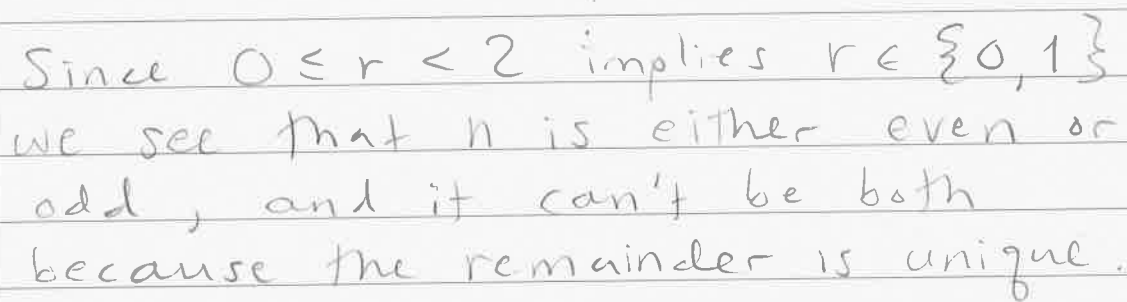 Since 0 ≤ r < 2 implies r ∈ {0, 1}
we see that n is either even or
odd, and it can't be both
because the remainder is unique.